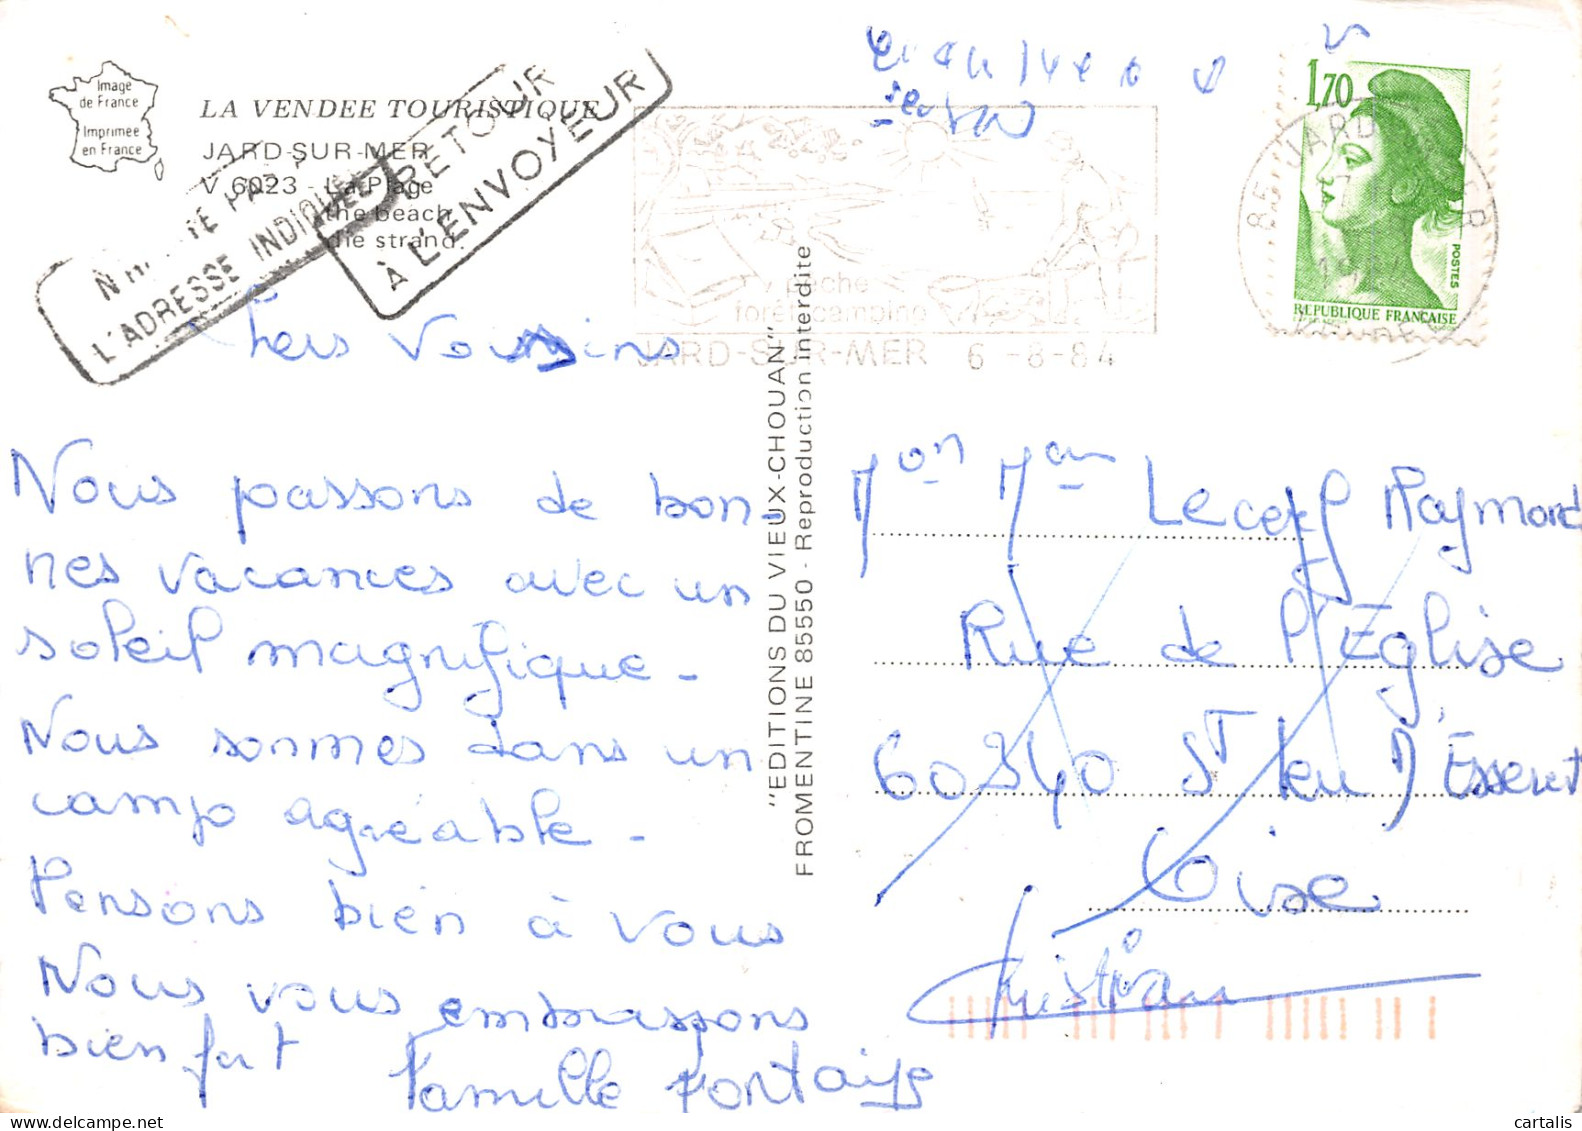 Image
de France
Imprimée
en France
LA VENDEE TOURISTIQUE
JARD-SUR-MER
V 6023 - La Plage
the beach
die strand.
L'ADRESSE INDIQUÉE
RETOUR
À L'ENVOYEUR
pêche
forêt camping
JARD-SUR-MER 6 -8-84
1,70
POSTES
REPUBLIQUE FRANÇAISE
Chers Voisins
Nous passons de bon-
nes vacances avec un
soleil magnifique -
Nous sommes dans un
camp agréable -
Pensons bien à vous
Nous vous embrassons
bien fort Famille Fontaine
"EDITIONS DU VIEUX-CHOUAN"
FROMENTINE 85550 - Reproduction interdite
Mon Mme Lecerf Raymond
Rue de l'Eglise
60340 St leu D'Esserent
Oise
Christian
cartalis